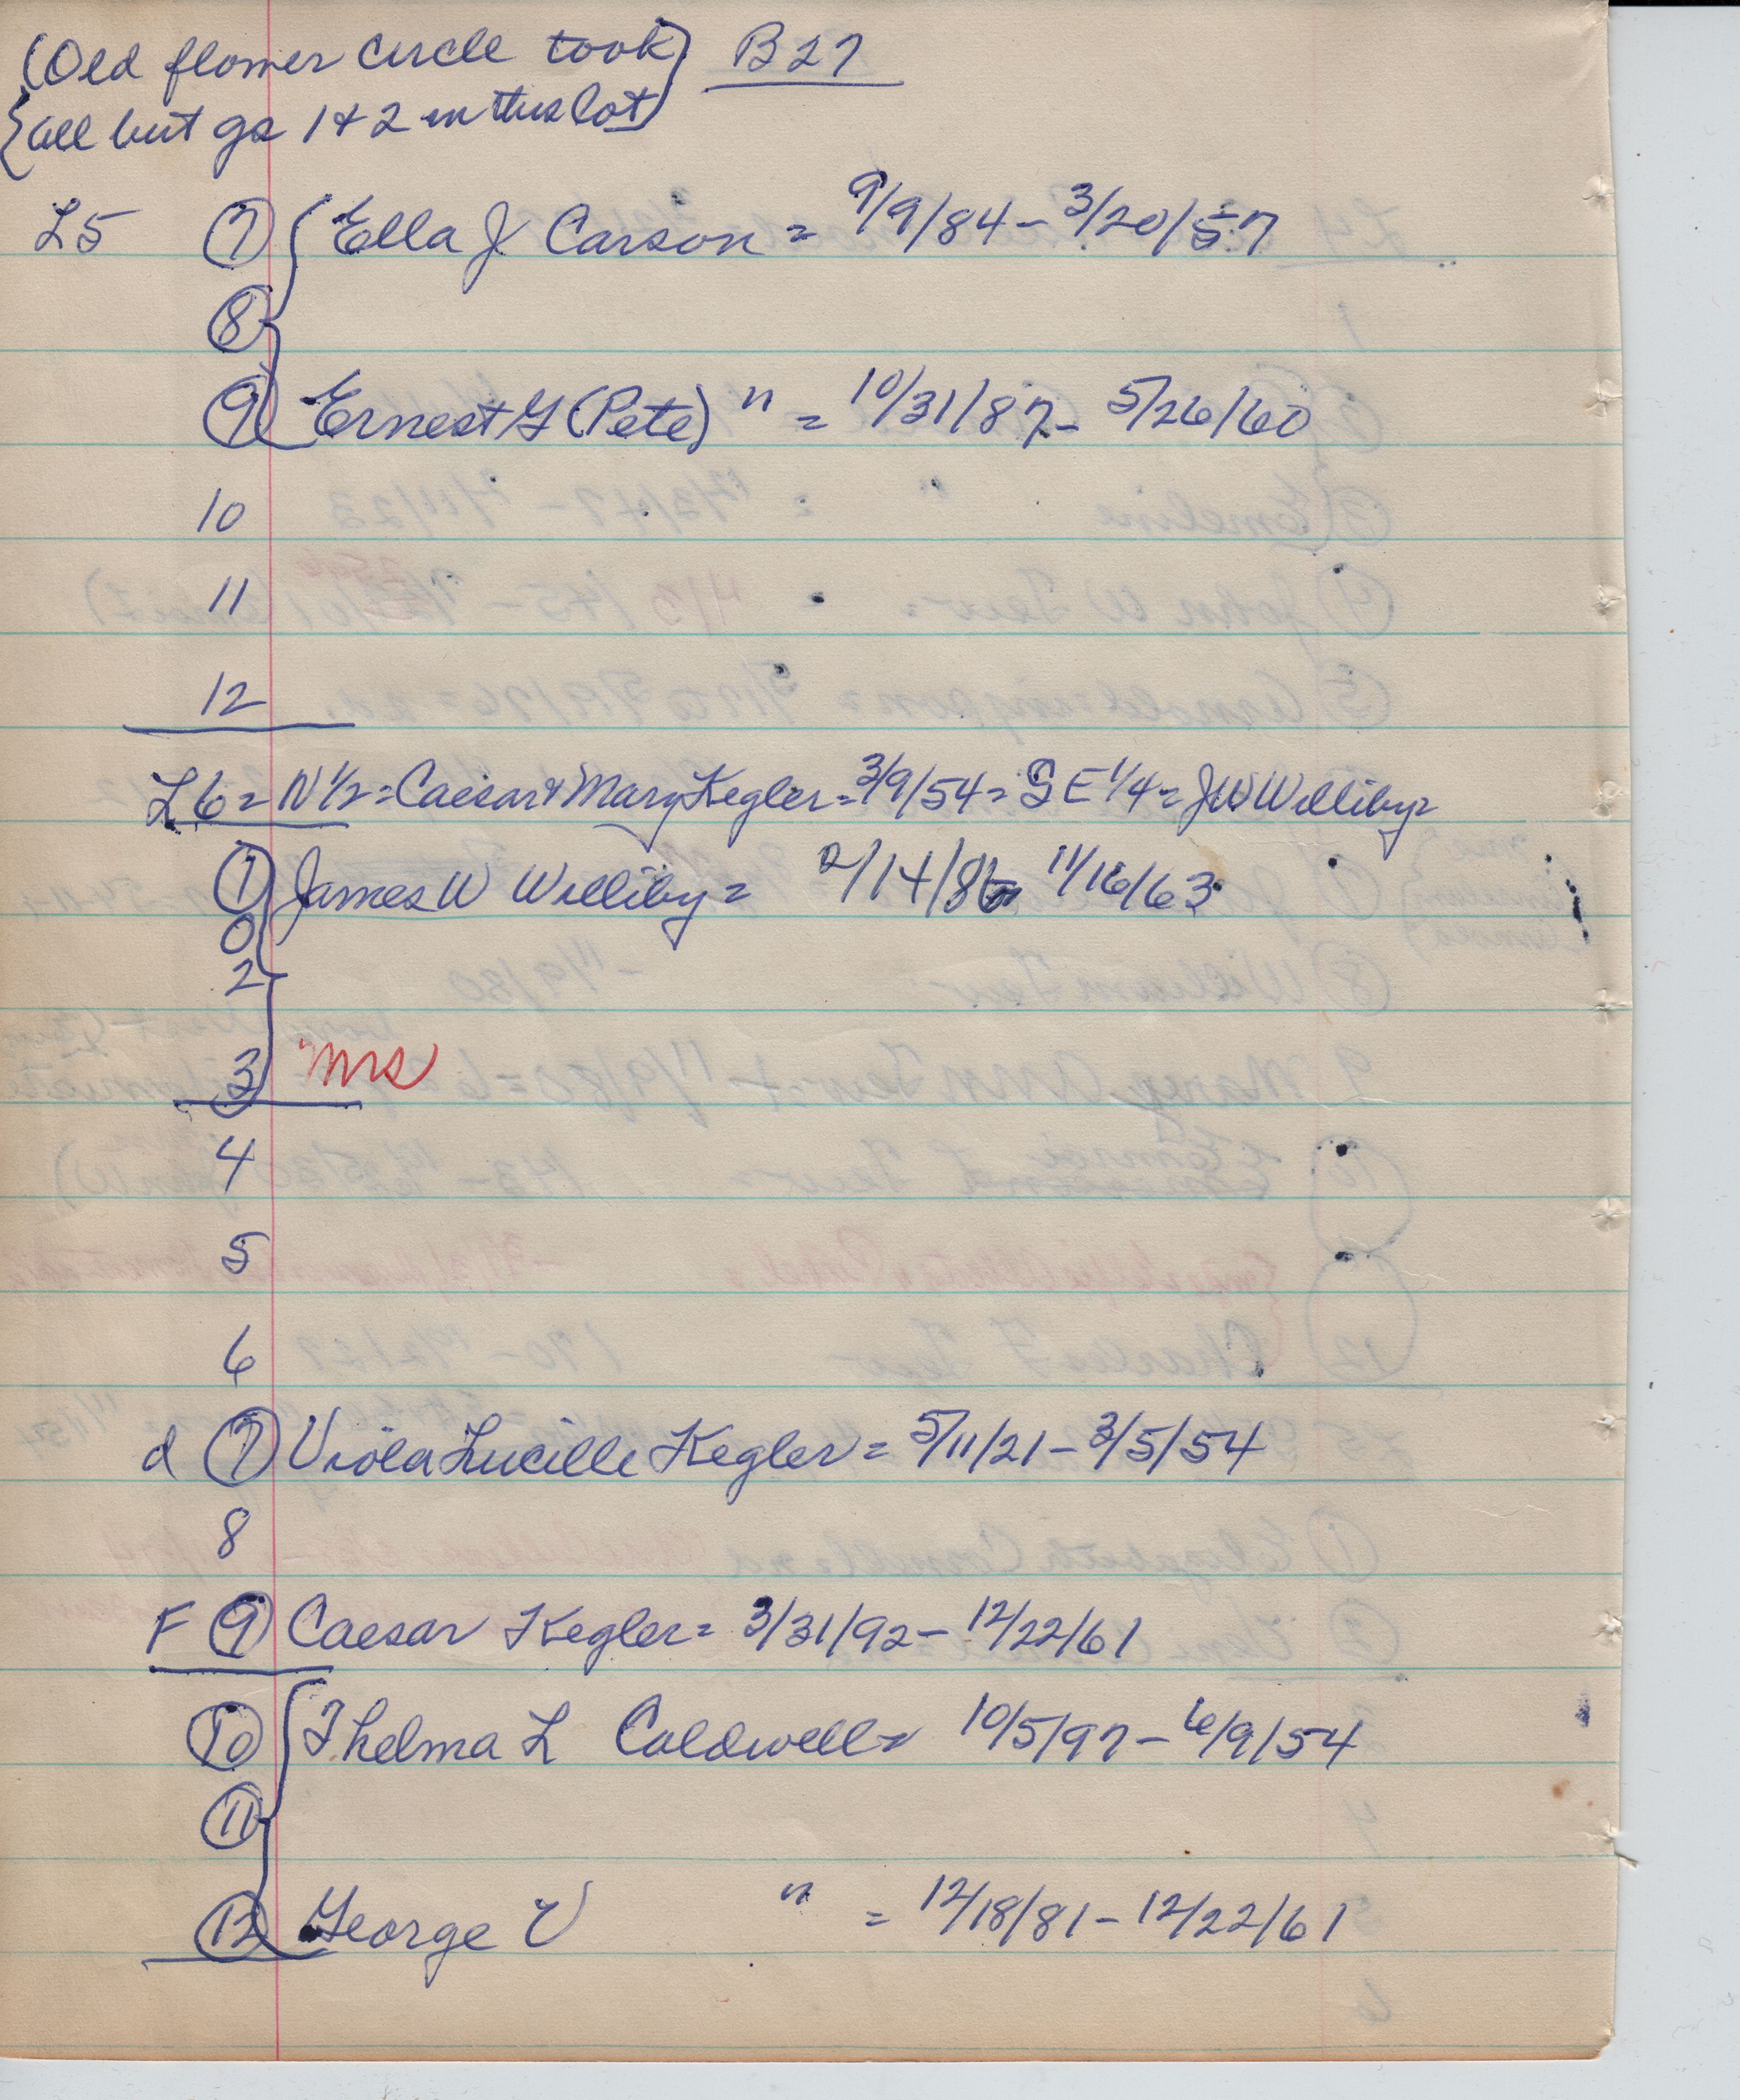 (Old flower circle took) B27
{all but gs 1 & 2 in this lot)
L5 7 Ella J Carson = 9/9/84 - 3/20/57
8
9 Ernest G (Pete) " = 10/31/87 - 5/26/60
10
11
12
L6 = N 1/2 = Caesar & Mary Kegler = 3/9/54 = SE 1/4 = JW Williby =
1 James W Williby = 2/14/86 - 11/16/63
0
2
3 Mrs
4
5
6
d 7 Viola Lucille Kegler = 5/11/21 - 3/5/54
8
F 9 Caesar Kegler = 3/31/92 - 12/22/61
10 Thelma L Coldwell = 10/5/97 - 6/9/54
11
12 George V " = 12/18/81 - 12/22/61